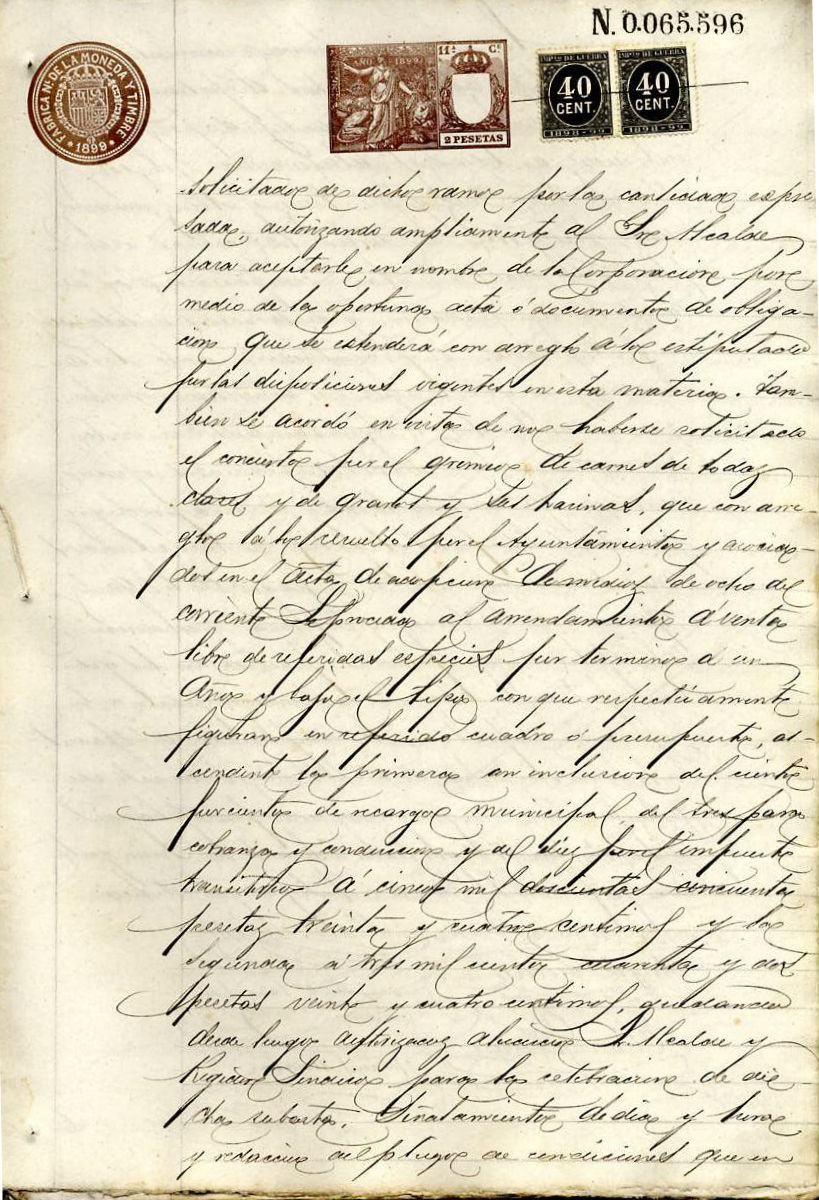 N. 0.065.596
FABRICA Nal DE LA MONEDA Y TIMBRE
* 1899 *
AÑO 1899
11ª Cª
2 PESETAS
IMPtO DE GUERRA
40
CENT.
1898-99
IMPtO DE GUERRA
40
CENT.
1898-99
solicitados de dichos ramos por las cantidades expre
sadas, autorizando ampliamente al Sr Alcalde
para aceptarle en nombre de la Corporacion por
medio de la oportuna acta ó documento de obliga-
cion que se estenderá con arreglo á lo estipulado
por las disposiciones vigentes en esta materia. Tam-
bien se acordó en vista de no haberse solicitado
el concierto por el gremio de carnes de todas
clases y de granos y sus harinas, que con arre-
glo á lo resuelto por el Ayuntamiento y asocia-
dos en el acta de adopcion de medios de ocho del
corriente se proceda al arrendamiento á venta
libre de referidas especies por termino de un
Año y bajo el tipo con que respectivamente
figuran en referido cuadro ó presupuesto, as-
cendente la primera con inclusion del ciento
por ciento de recargo municipal, del tres para
cobranza y conduccion y del diez por el impuesto
transitorio á cinco mil doscientas cincuenta
pesetas treinta y cuatro centimos y la
segunda á tres mil ciento cuarenta y dos
pesetas veinte y cuatro centimos, quedando
desde luego autorizados Sr. Alcalde y
Regidor Sindico para la celebracion de di-
cha subasta, Señalamiento de dia y hora
y redaccion del pliego de condiciones que en